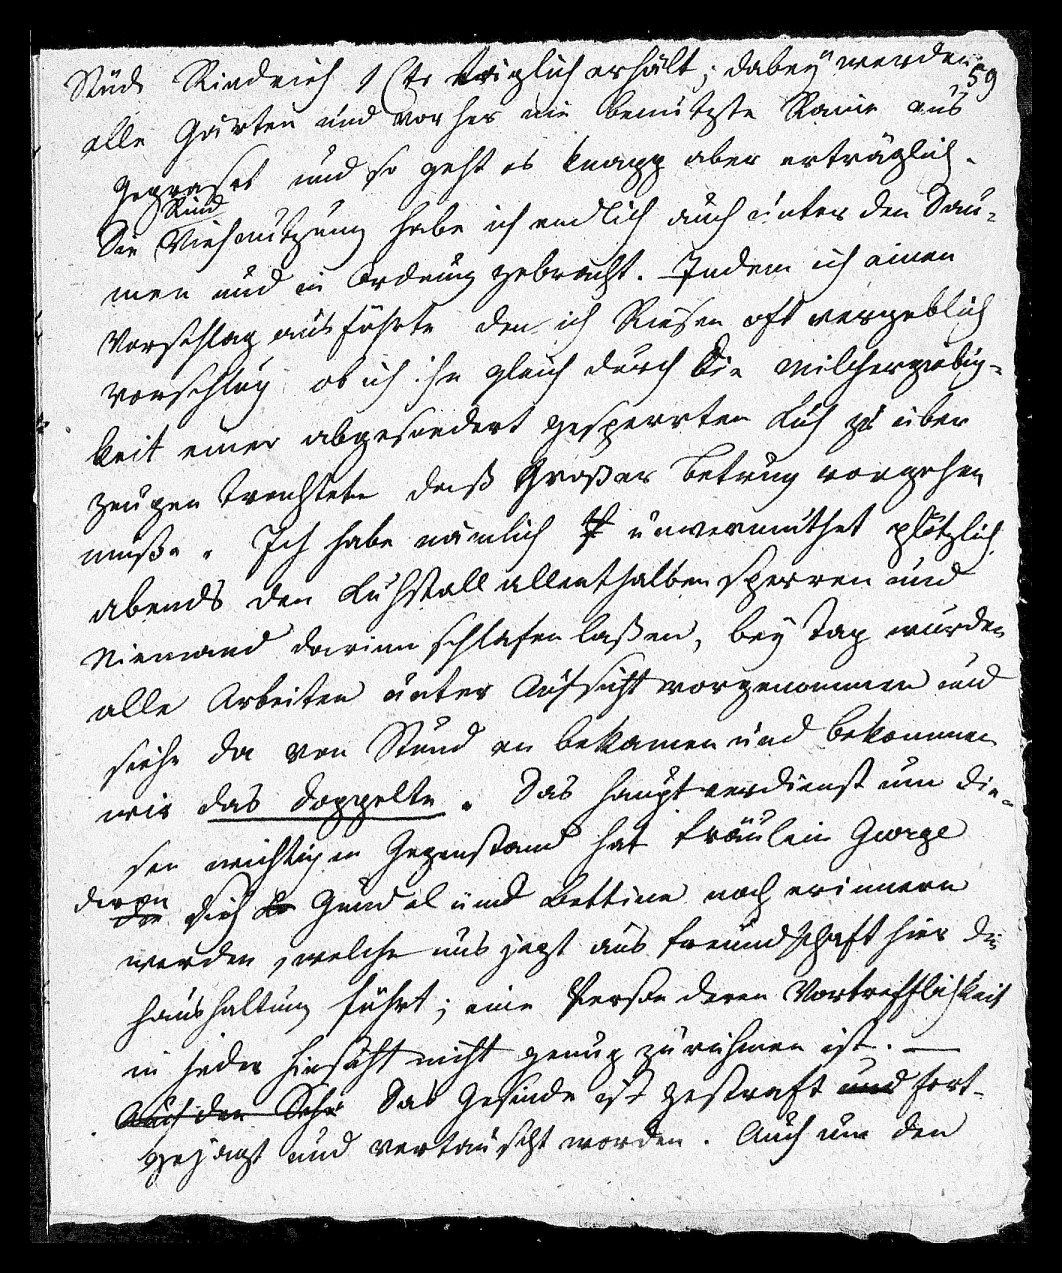 59
Stück Rindvieh 1 Ctr täglich erhält; dabey werden
alle Gärten und vorher nie benutzte Raine aus
gegraset und so geht es knapp aber erträglich.
Rind
Die Viehnutzung habe ich endlich auch unter den Dau-
men und in Ordnung gebracht. Indem ich einen
Vorschlag ausführte den ich Riesen oft vergeblich
vorschlug ob ich ihn gleich durch die Milchergebig-
keit einer abgesondert gesperrten Kuh zu über
zeugen trachtete daß Großer Betrug vorgehen
muße. Ich habe nämlich unvermuthet plötzlich
abends den Kuhstall allenthalben sperren und
Niemand darinn schlafen laßen, bey Tag wurden
alle Arbeiten unter Aufsicht vorgenommen und
siehe da von Stund an bekamen und bekommen
wir das doppelte. Das Hauptverdienst um die-
sen wichtigen Gegenstand hat Fräulein George
deren
die sich Gundel und Bettine noch erinnern
werden, welche uns jezt aus Freundschaft hier die
Haushaltung führt; eine Person deren Vortrefflichkeit
in jeder Hinsicht nicht genug zu rühmen ist. —
Auch den Das Gesinde ist gestraft und fort-
gejagt und vertauscht worden. Auch um den